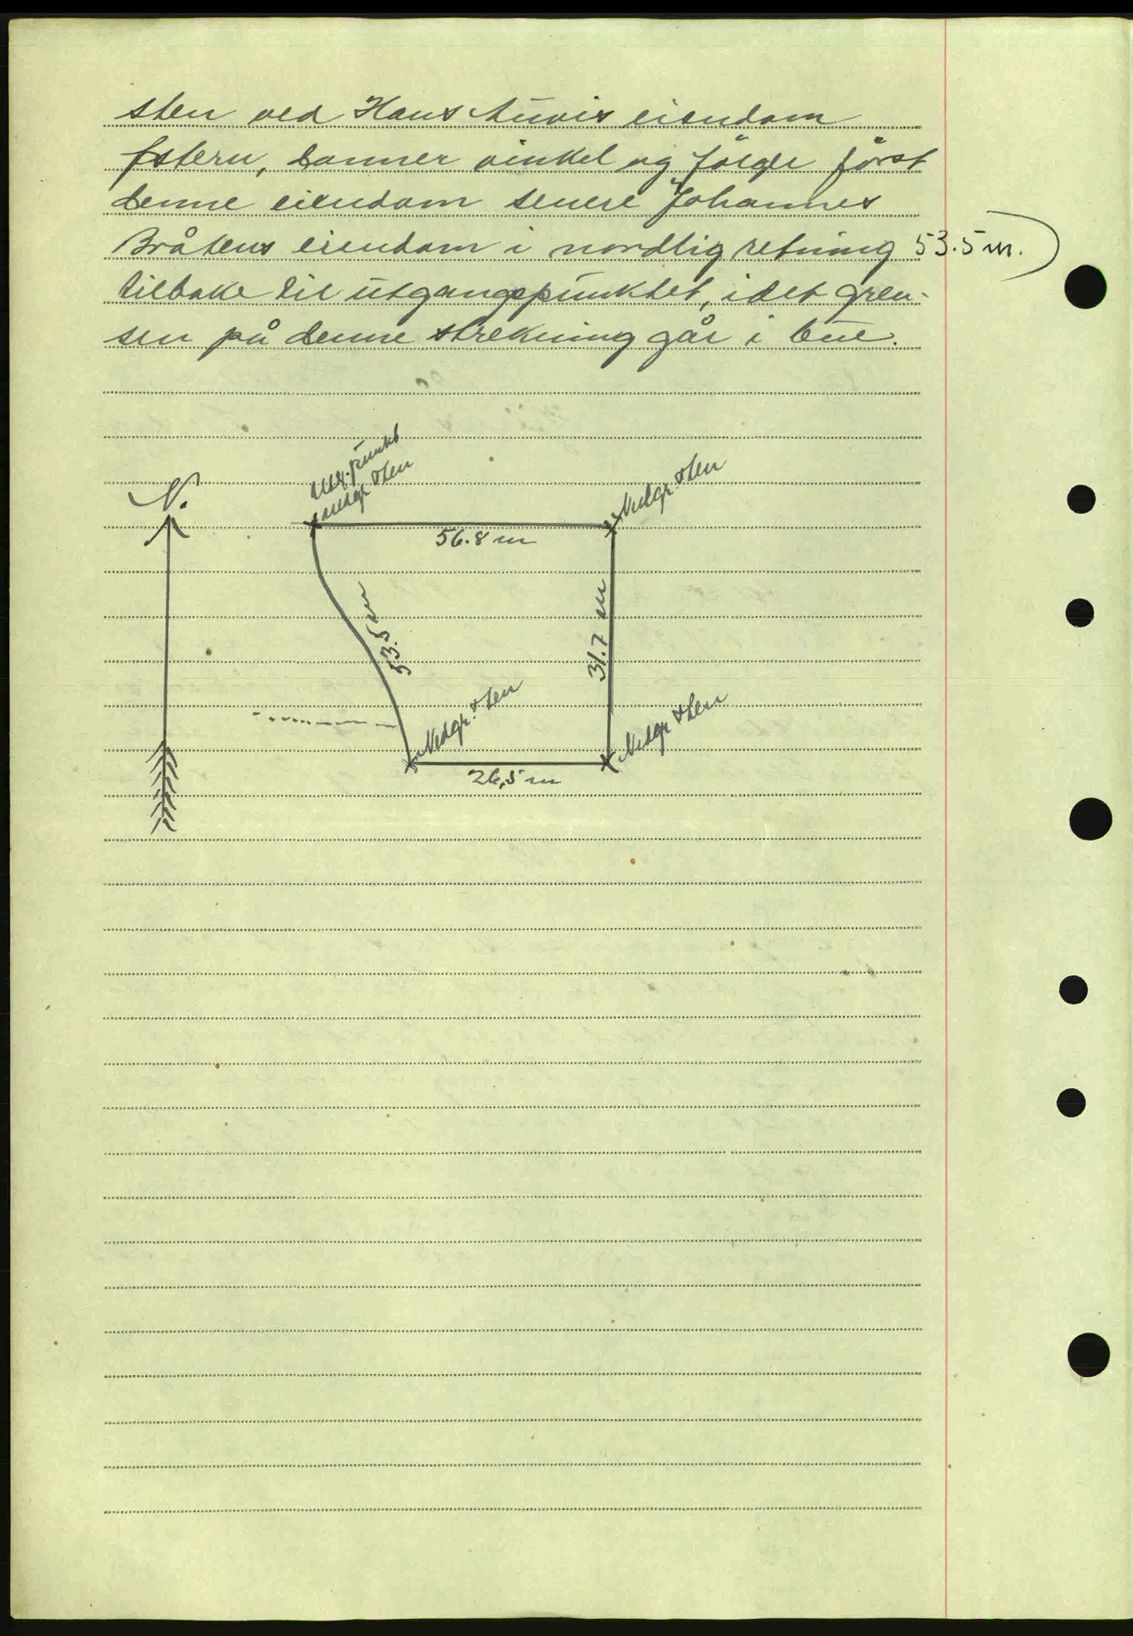 sten ved Hans eiendom
danner vinkel og følger først
denne eiendom senere Johannes
Bråtens eiendom i nordlig retning 53.5 m.
tilbake til utgangspunktet, idet gren-
sen på denne strekning går i bue.
Utg. punkt
nedgr. sten
Nedgr. sten
N.
56.8 m
53.5 m
31.7 m
Nedgr. sten
Nedgr. sten
26,5 m